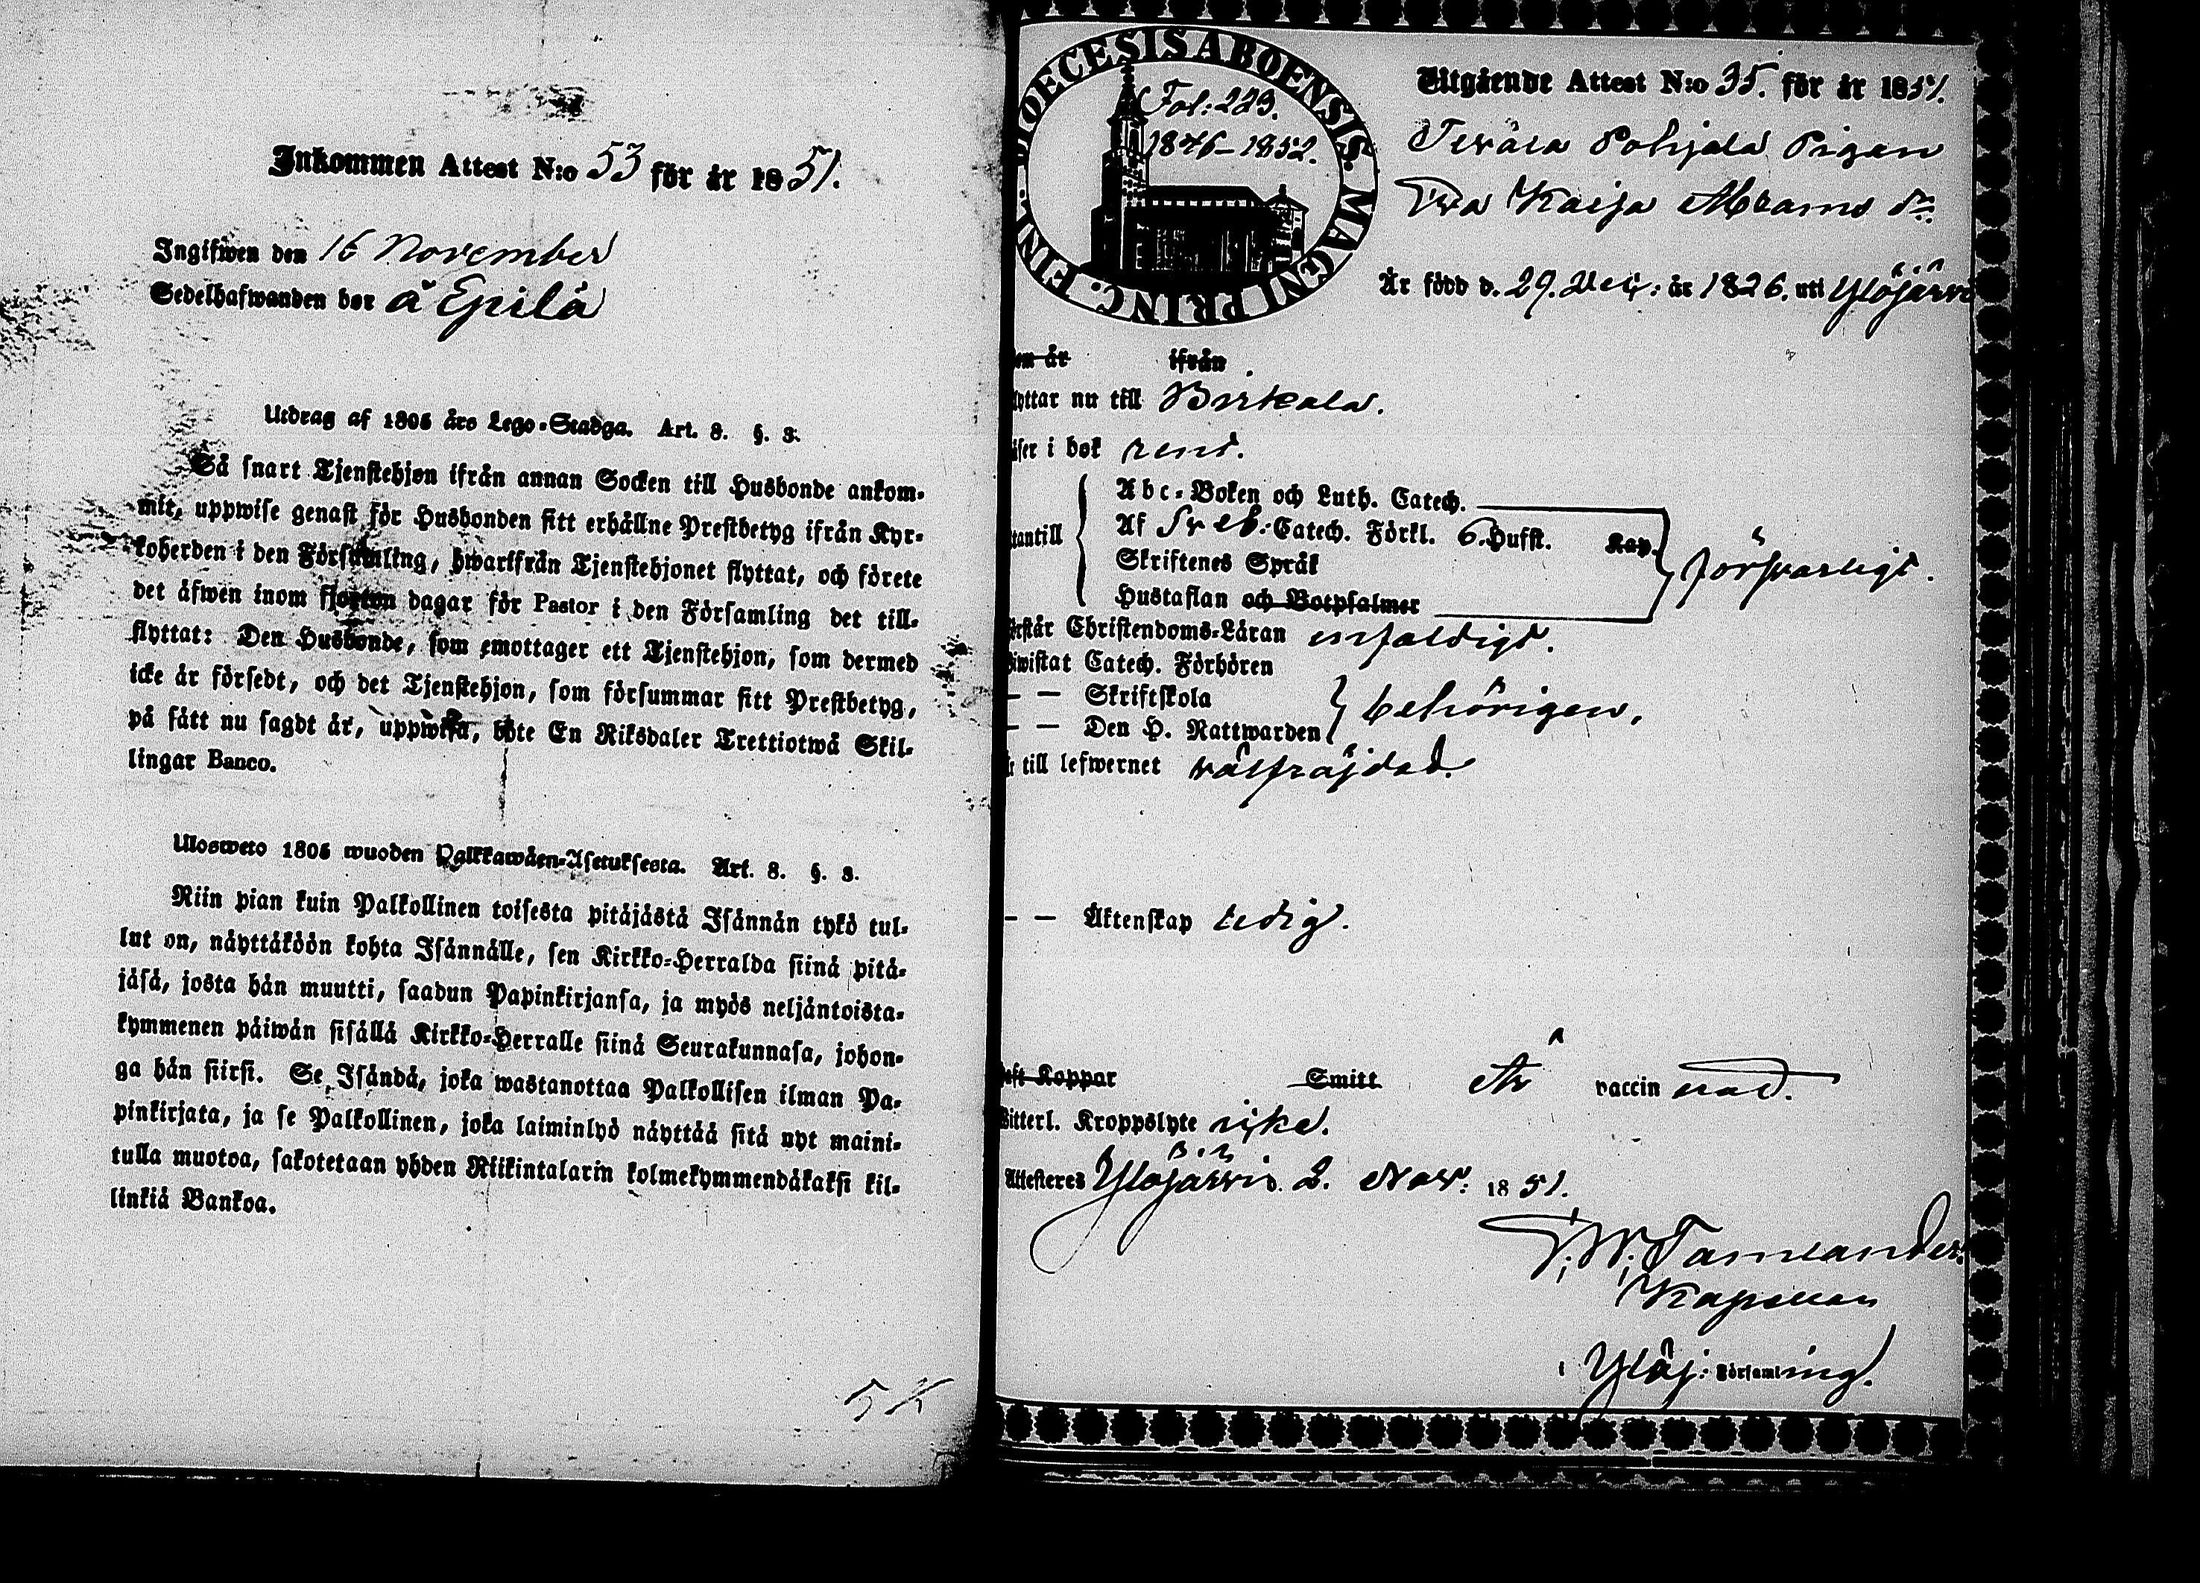 Inkommen Attest N:o 53 för år 1851.
Ingifwen den 16 November
Sedelhafwanden bor å Epilä
Utdrag af 1805 års Lego-Stadga. Art. 8. §. 3.
Så snart Tjenstehjon ifrån annan Socken till Husbonde ankom-
mit, uppwise genast för Husbonden sitt erhållne Prestbetyg ifrån Kyr-
koherden i den Församling, hwarifrån Tjenstehjonet flyttat, och förete
det äfwen inom fjorton dagar för Pastor i den Församling det till-
flyttat: Den Husbonde, som emottager ett Tjenstehjon, som dermed
icke är försedt, och det Tjenstehjon, som försummar sitt Prestbetyg,
på sätt nu sagdt är, uppwisa, böte En Riksdaler Trettiotwå Skil-
lingar Banco.
Ulosweto 1805 wuoden Palkkawäen-Asetuksesta. Art. 8. §. 3.
Niin pian kuin Palkollinen toisesta pitäjästä Isännän tykö tul-
lut on, näyttäköön kohta Isännälle, sen Kirkko-Herralda siinä pitä-
jäsä, josta hän muutti, saadun Papinkirjansa, ja myös neljäntoista-
kymmenen päiwän sisällä Kirkko-Herralle siinä Seurakunnasa, johon-
ga hän siirsi. Se Isändä, joka wastanottaa Palkollisen ilman Pa-
pinkirjata, ja se Palkollinen, joka laiminlyö näyttää sitä nyt maini-
tulla muotoa, sakotetaan yhden Riikintalarin kolmekymmendäkaksi kil-
linkiä Bankoa.
DIOECESIS ABOENSIS. MAGNI PRINC. FINL.
Fol: 223.
1846-1852.
Utgående Attest N:o 35. för år 1851.
Pohjala Pigan
Eva Kaisa Abrams dr.
Är född d. 29. Dec: år 1826. uti Ylöjärvi
om år ifrån
yttar nu till Birkala.
äser i bok rent.
utantill
Abc-Boken och Luth. Catech.
Af Sveb: Catech. Förkl. 6. Hufst. Kap.
Skriftenes Språk
Hustaflan och Botpsalmer
försvarligt.
örstår Christendoms-Läran enfaldigt.
iwistat Catech. Förhören
— — Skriftskola
— — Den H. Nattwarden
behörigen.
r till lefwernet välfräjdad.
— — Äktenskap ledig.
aft Koppor Smitt Är vaccinerad.
Witterl. Kroppslyte icke.
Attesteres Ylöjärvi. 2. Nov: 1851.
Kapellan
i Ylöj: Församling.